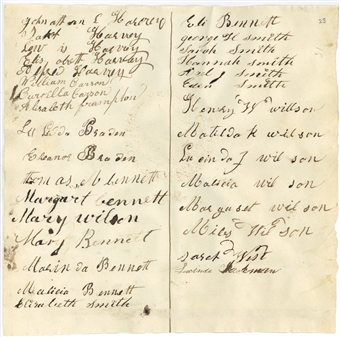 Johnathan L Harvey
Harvey
Harvey
Elisabeth Harvey
Harvey
William Carson
Carson
Frampton
Braden
Elanor Braden
thomas M bennett
Margart bennett
Mary wilson
Mary Bennett
Marinda Bennett
Maticia Bennett
Elizabeth Smith
33
Eli Bennett
george H smith
Sarah Smith
Hannah smith
smith
Eden Smith
Henry W willson
Matilda k wilson
Lucinda J wilson
Maticia wilson
Margaret wilson
Miles wilson
Sarah West